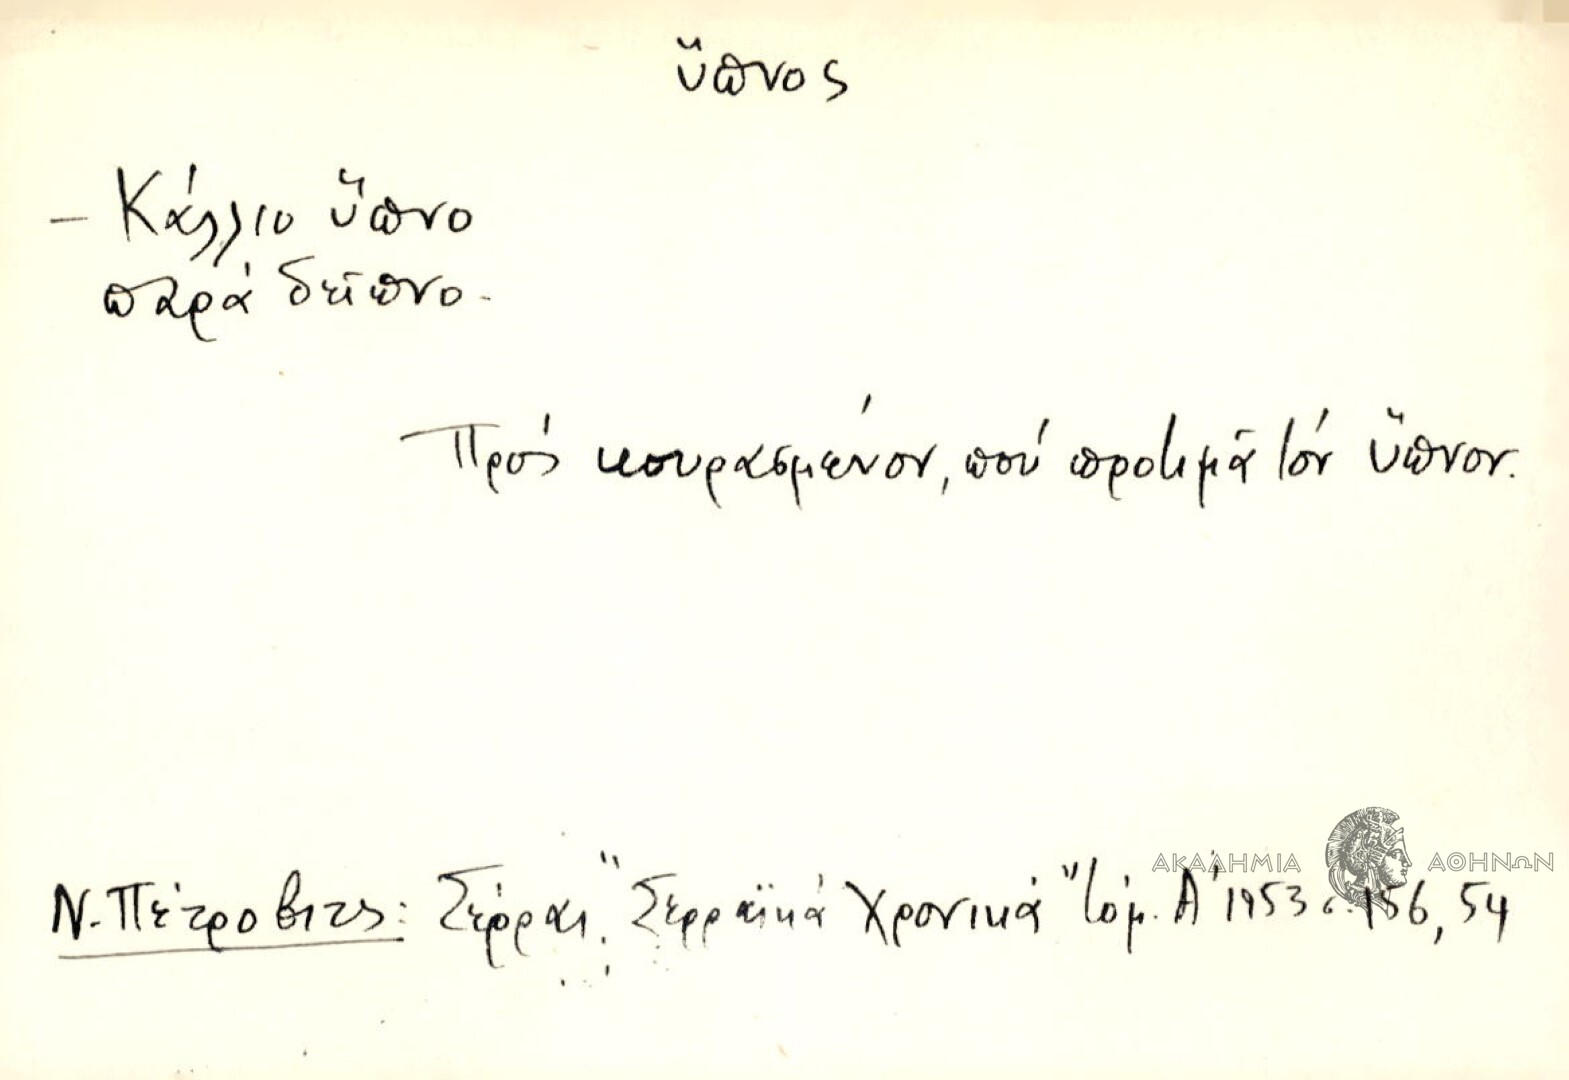 ὕπνος
– Κάλλιο ὕπνο
παρά δεῖπνο.
Πρός κουρασμένον, πού προτιμᾶ τόν ὕπνον.
ΑΚΑΔΗΜΙΑ ΑΘΗΝΩΝ
Ν. Πέτροβιτς: Σέρραι, "Σερραϊκά Χρονικά" τόμ. Α' 1953 σ. 156, 54